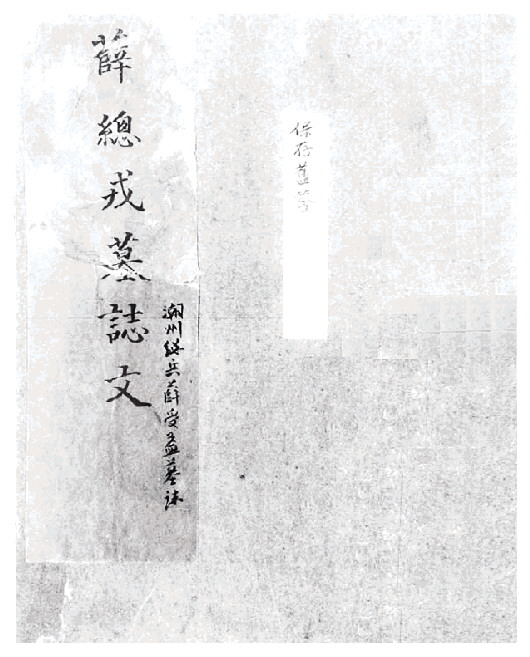 保存舊
薛總戎墓誌文
潮州總兵薛受益墓誌